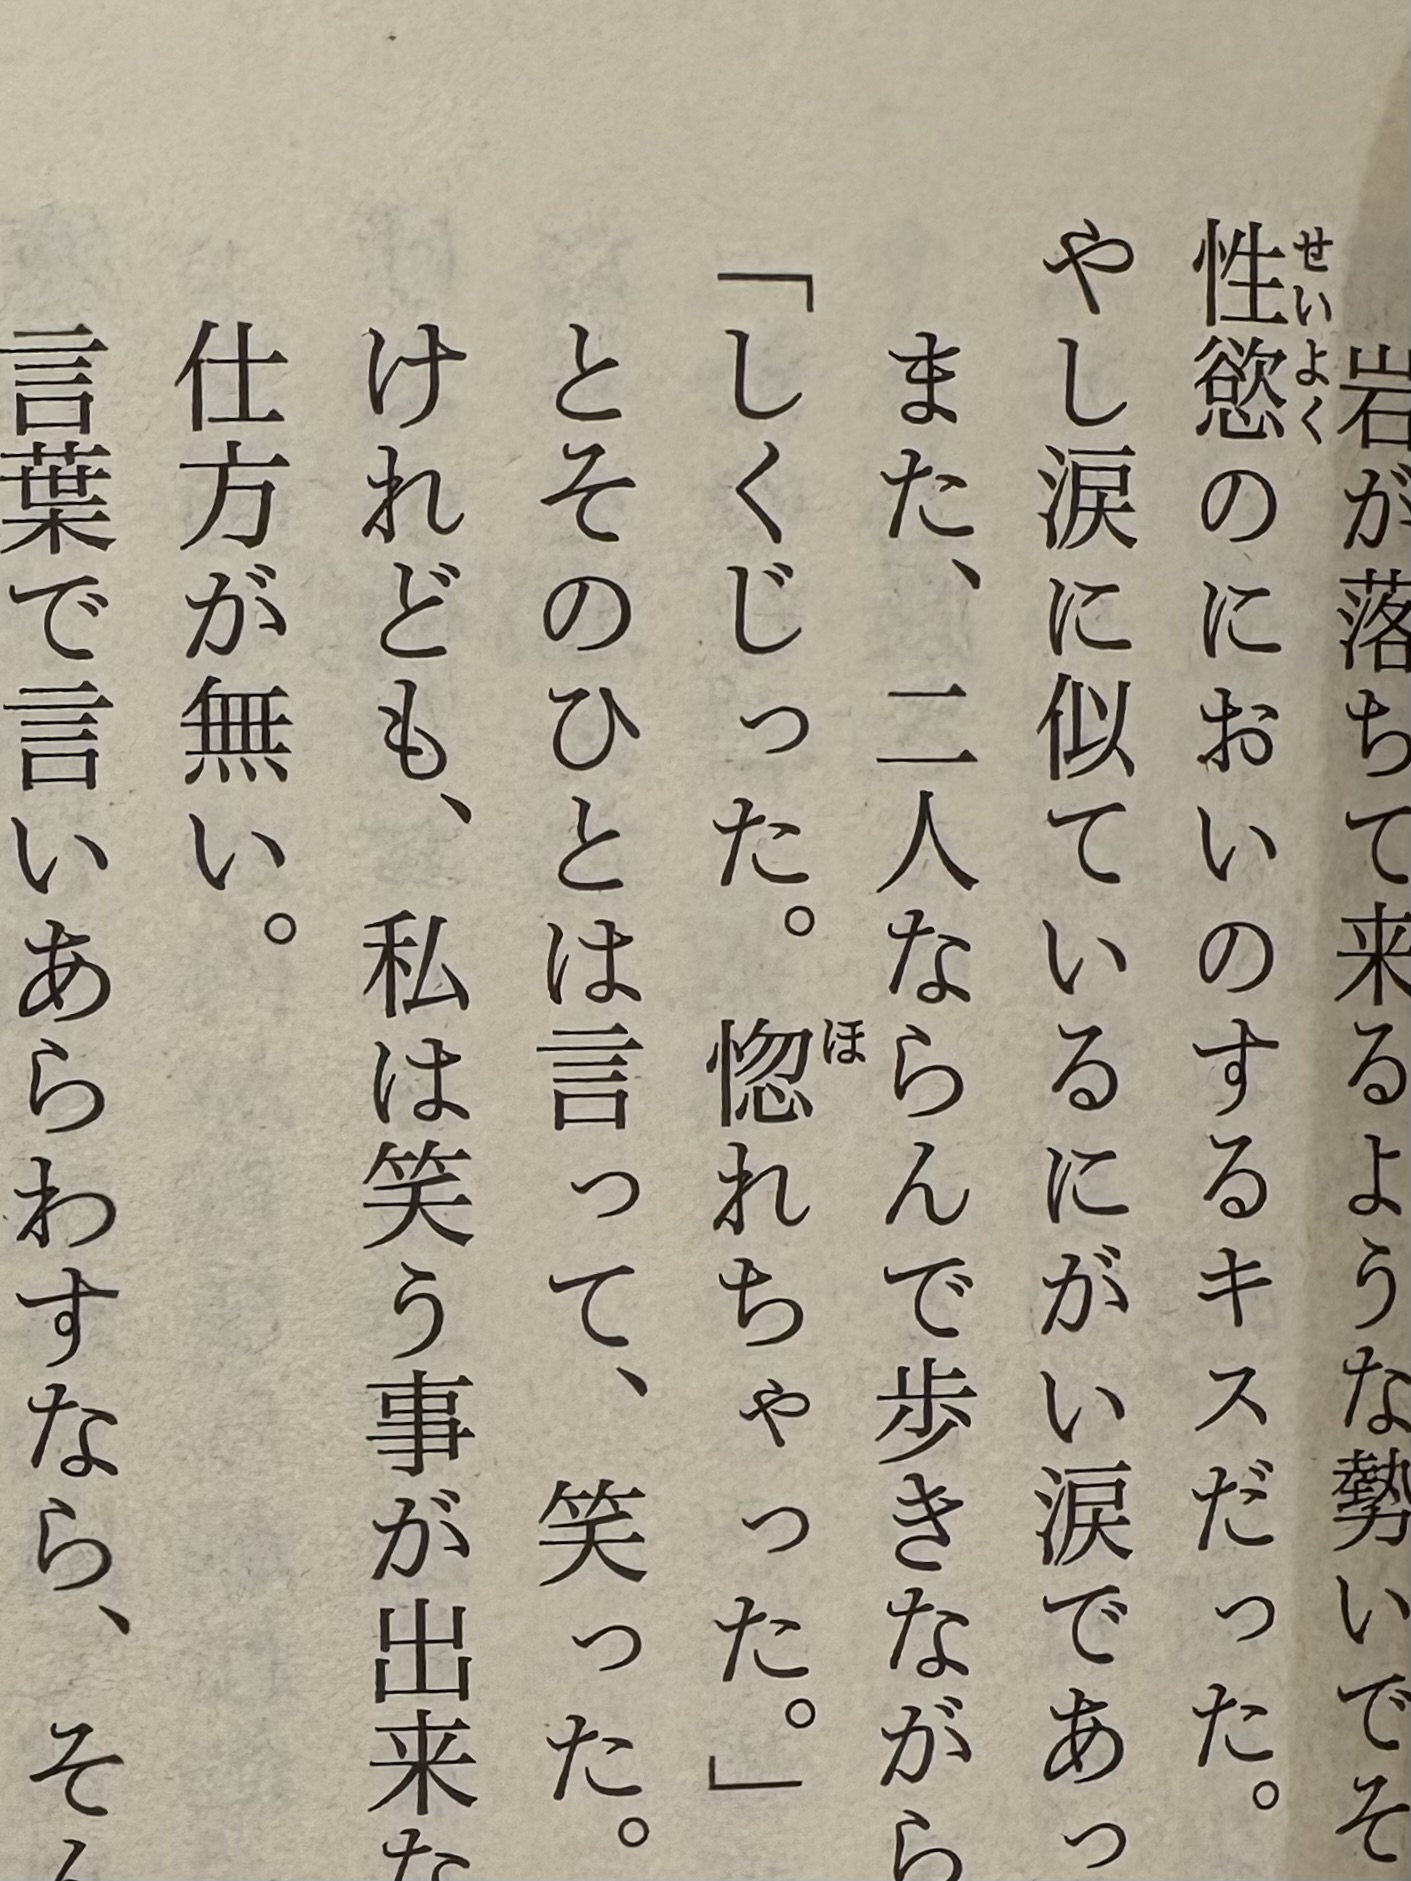 岩が落ちて来るような勢いでそ
性慾のにおいのするキスだった。
やし涙に似ているにがい涙であっ
また、二人ならんで歩きながら
「しくじった。惚れちゃった。」
とそのひとは言って、笑った。
けれども、私は笑う事が出来な
仕方が無い。
言葉で言いあらわすなら、そん